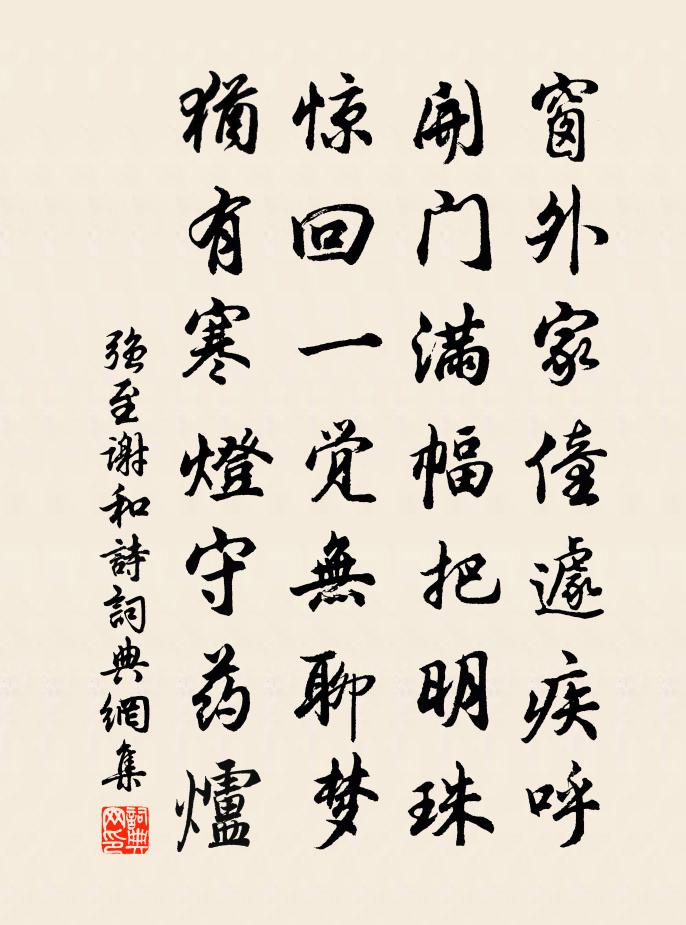 窗外家僮遽疾呼
開门滿幅把明珠
惊回一觉無聊梦
猶有寒燈守药爐
强至谢和詩詞典網集
詞典网印